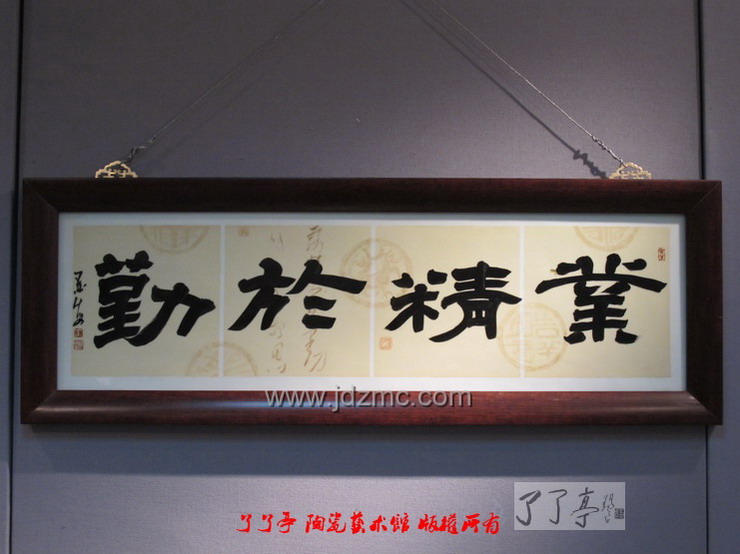 業精於勤
www.jdzmc.com
了了亭 陶瓷藝术館 版權所有
了了亭